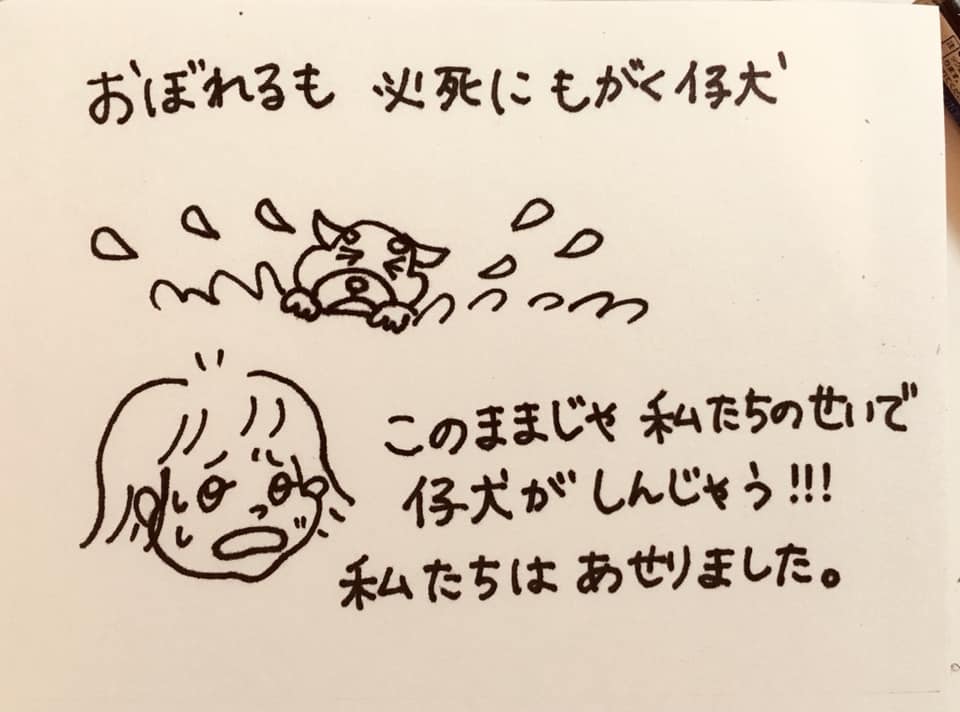 おぼれるも 必死にもがく仔犬
このままじゃ 私たちのせいで
仔犬がしんじゃう!!!
私たちは あせりました。